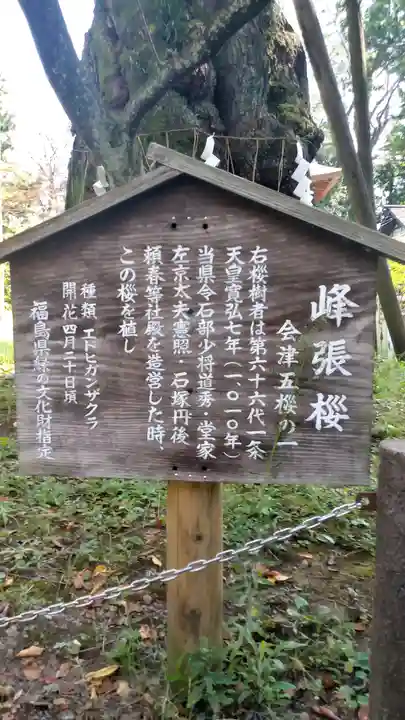 峰張桜
会津五桜の一
右桜樹者は第六十六代一条
天皇寛弘七年(一、〇一〇年)
当県令石部少将道秀・堂家
左京太夫憲照・石塚丹後
頼春等社殿を造営した時、
この桜を植し
種類 エドヒガンザクラ
開花 四月二十日頃
福島県緑の文化財指定